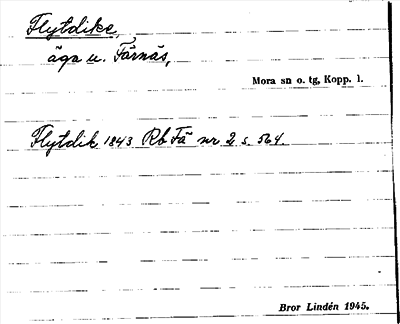 Flytdike,
äga u. Färnäs,
Mora sn o. tg, Kopp. l.
Flytdik 1843 Rb Fä nr 2 s. 564.
Bror Lindén 1945.